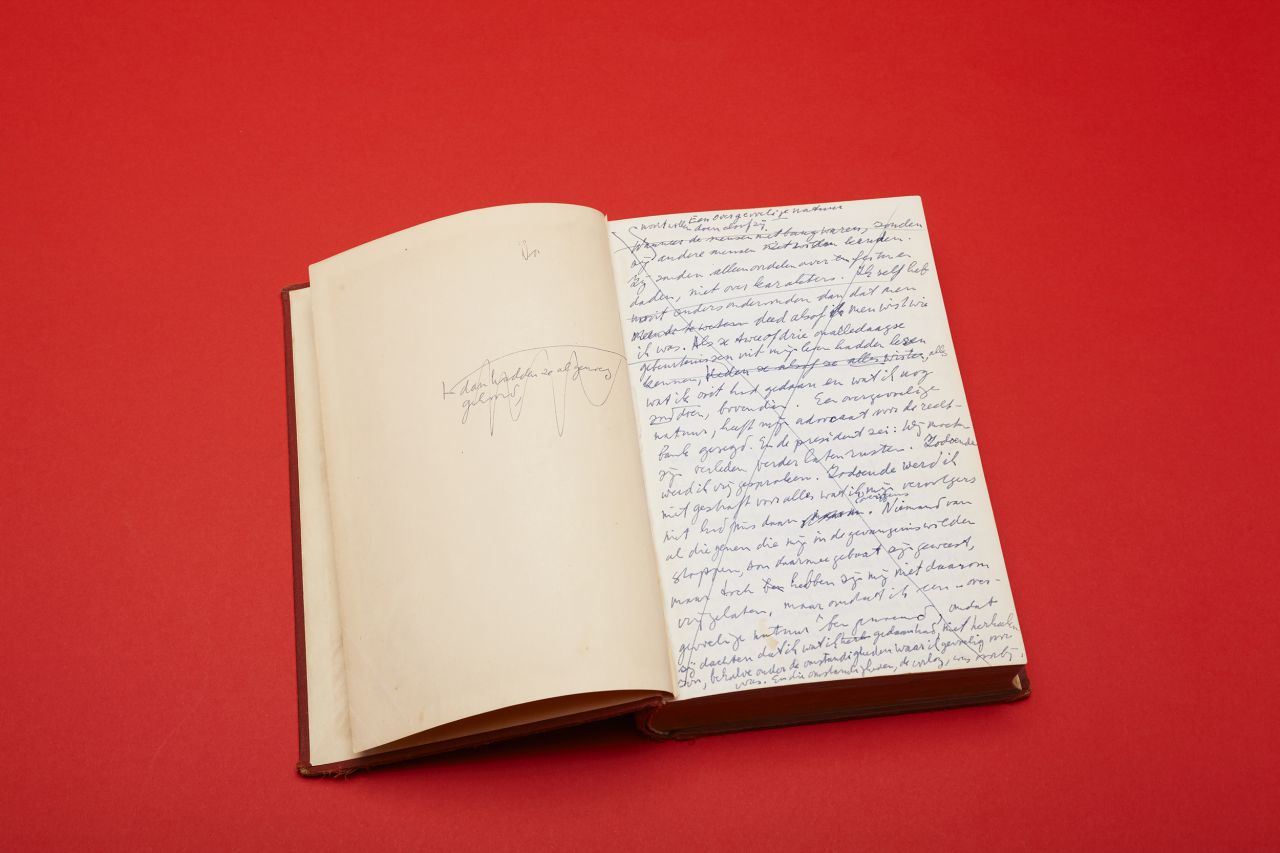 Van
dan hadden ze al genoeg
gehoord,
Een overgevoelige natuur
nooit willen doen alsof zij
Wanneer de mensen niet bang waren, zouden
zij andere mensen niet willen kennen.
Zij zouden alleen ordelen over en
daden, niet over karakters. Ik zelf heb
nooit anders ondervonden dan dat men
meende te weten deed alsof men wist wie
ik was. Als ze twee of drie onalledaagse
gebeurtenissen uit mijn leven hadden leren
kennen, deden ze alsof ze alles wisten, alles
wat ik ooit had gedaan en wat ik nog
zou doen, bovendien. Een overgevoelige
natuur, heeft mijn advocaat voor de recht-
bank gezegd. En de president zei: Wij moeten
zijn verleden verder laten rusten. Zodoende
werd ik vrijgesproken. Zodoende werd ik
niet gestraft voor alles wat ik mijn vervolgers
niet had misdaan overigens. Niemand van
al diegenen die mij in de gevangenis wilden
stoppen, zou daarmee gebaat zijn geweest,
maar toch hebben zij mij niet daarom
vrijgelaten, maar omdat ik een "over-
gevoelige natuur" ben genoemd, omdat
zij dachten dat ik wat ik gedaan had, niet herhalen
zou, behalve onder de omstandigheden waar ik gevoelig voor
was. En die omstandigheden, de oorlog, was voorbij.